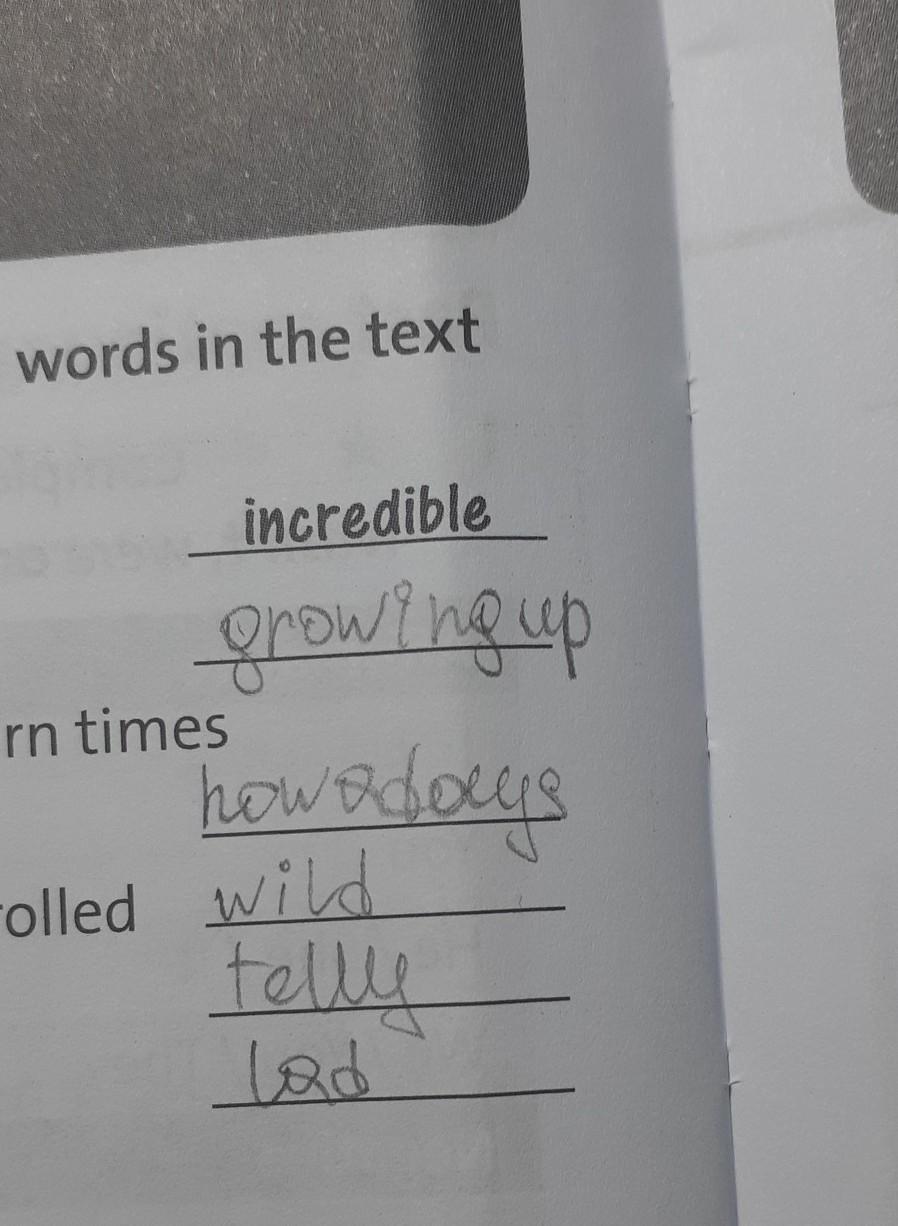 words in the text
incredible
growing up
rn times
nowadays
rolled
wild
telly
lad